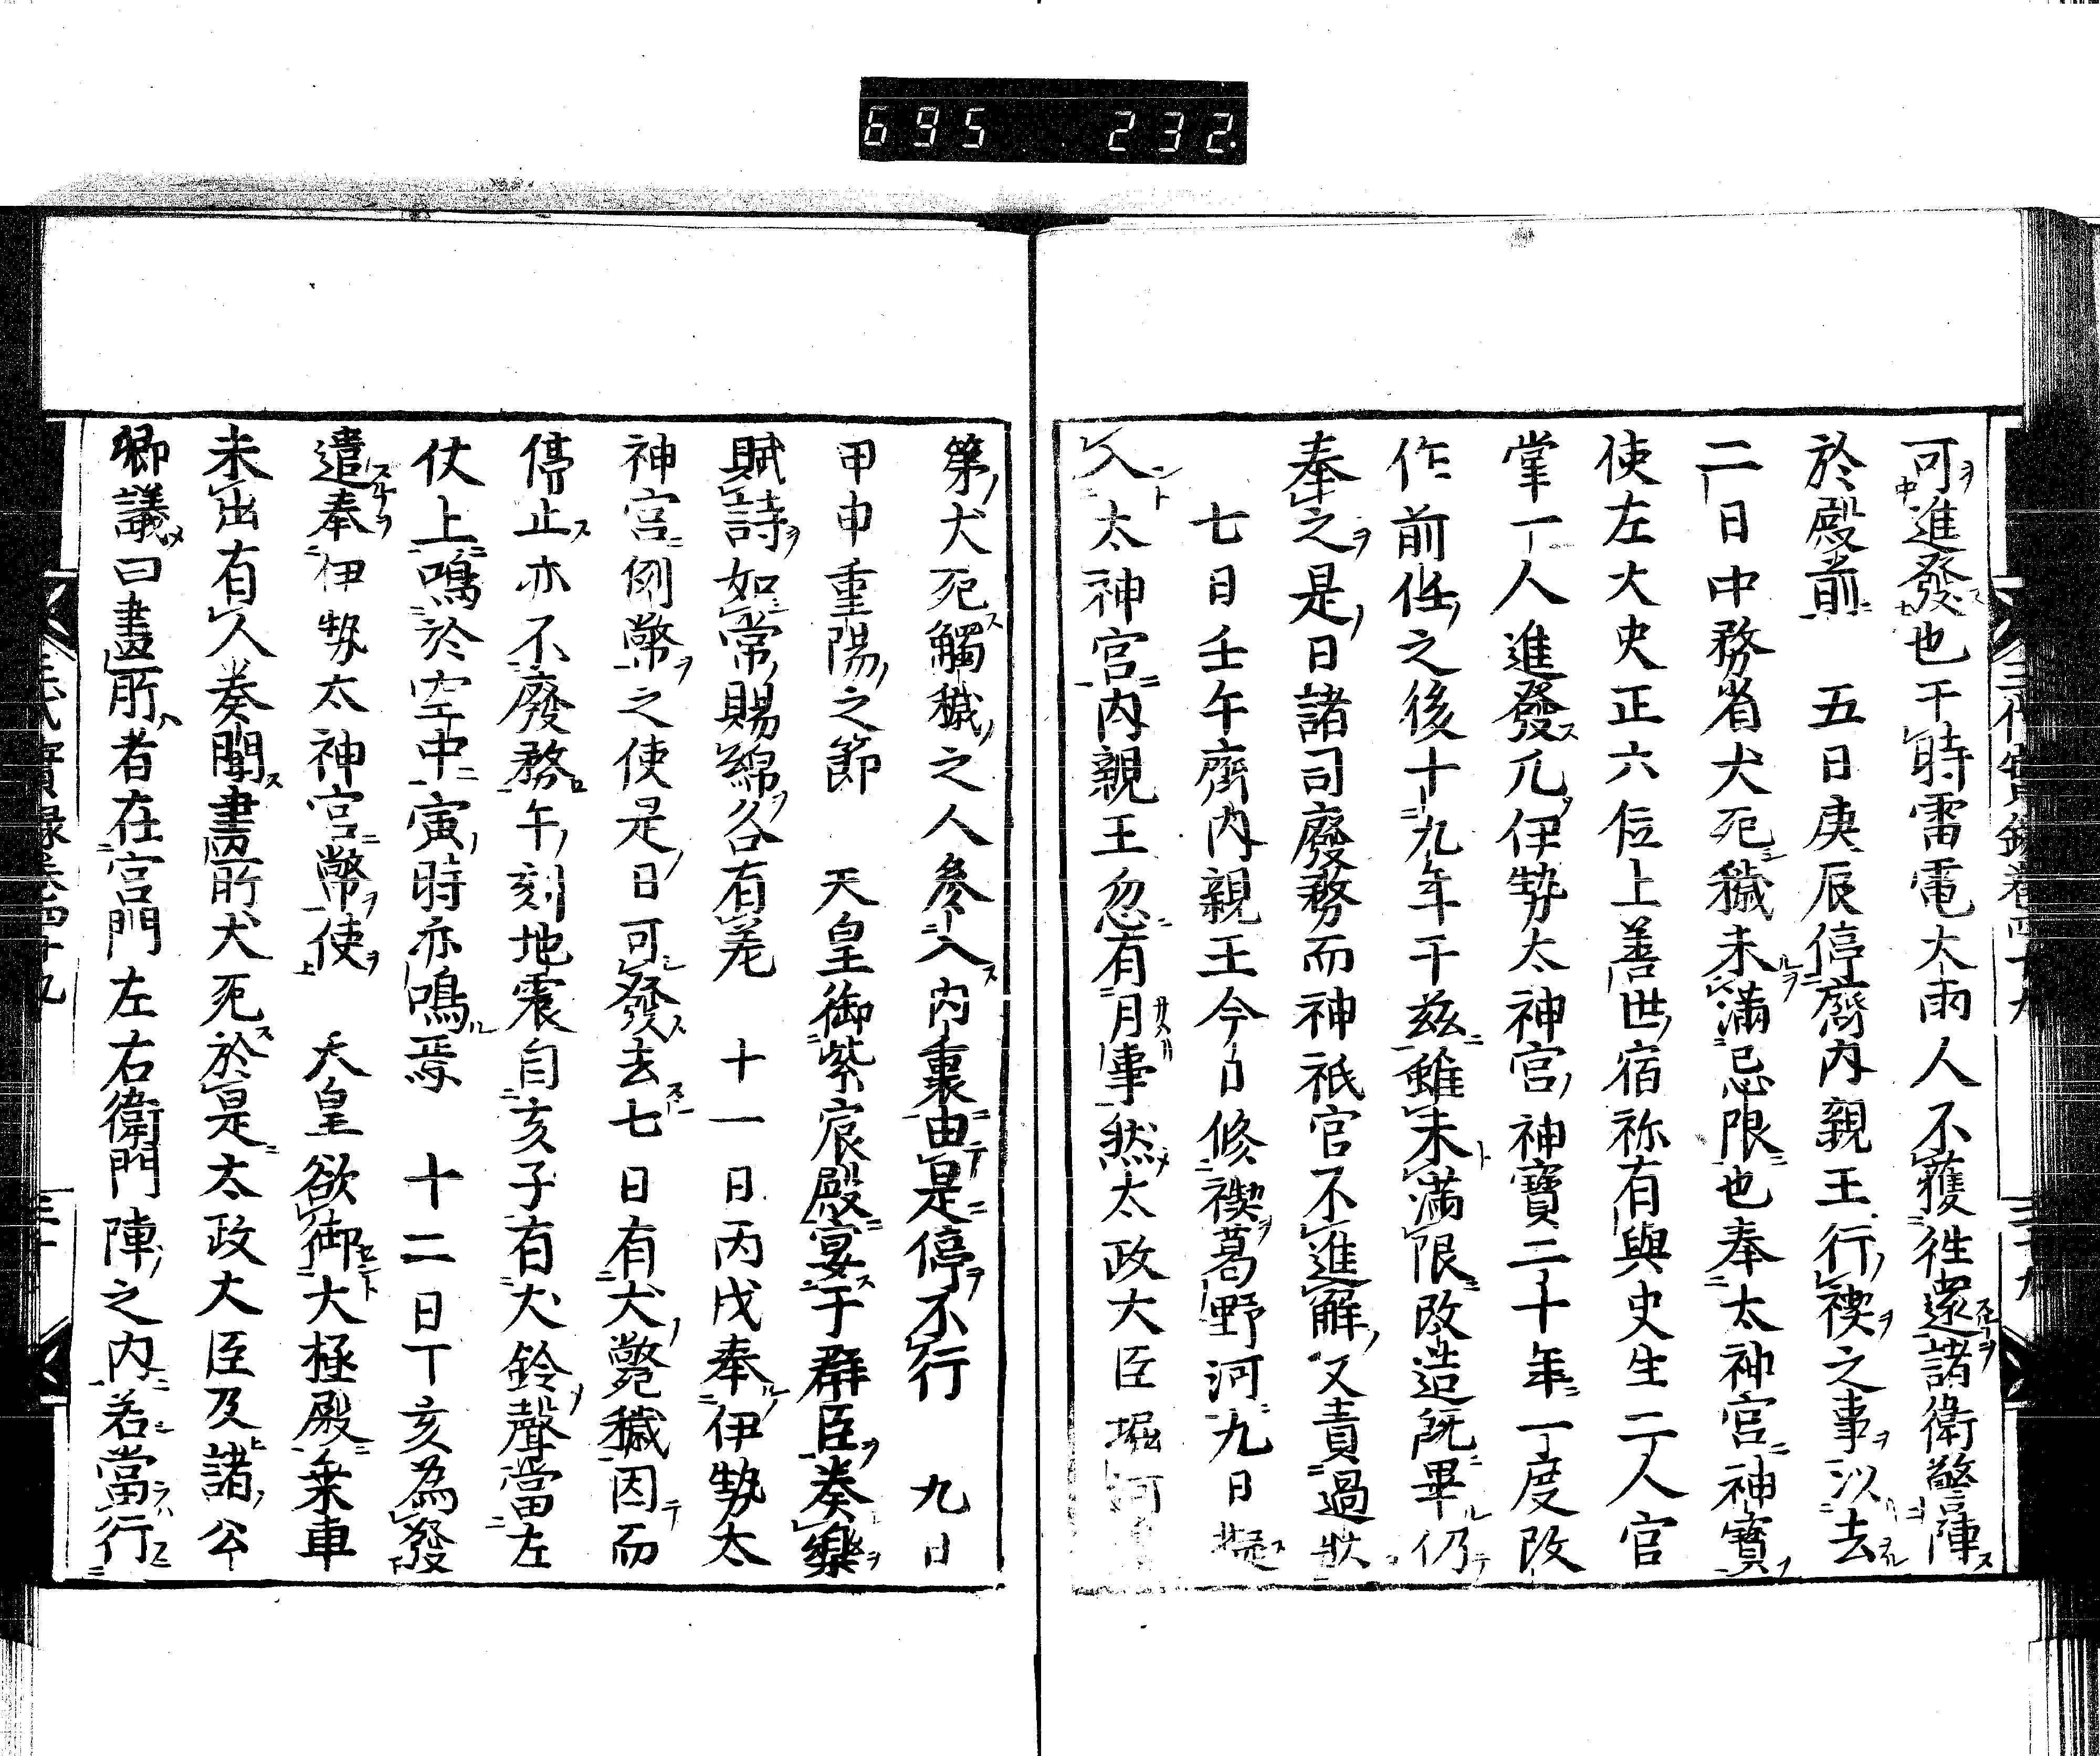 695 232.
可進發也于時雷電大雨人不獲徃還諸衛警陣
於殿前　五日庚辰停齋内親王行禊之事以去
二日中務省犬死穢未滿忌限也奉太神宮神寶
使左大史正六位上善世宿祢有與史生二人官
掌一人進發凡伊勢太神宮神寶二十年一度改
作前任之後十九年于茲雖未滿限改造既畢仍
奉之是日諸司廢務而神祇官不進解又責過狀
七日壬午齋内親王今日修禊葛野河九日擬
入太神宮内親王忽有月事然太政大臣堀河
第犬死觸穢之人參入内裏由是停不行　九日
甲申重陽之節　天皇御紫宸殿宴于群臣奏樂
賦詩如常賜綿各有差　十一日丙戌奉伊勢太
神宮例幣之使是日可發去七日有犬斃穢因而
停止亦不廢務午刻地震自亥子有大鈴聲當左
仗上鳴於空中寅時亦鳴焉　十二日丁亥為發
遣奉伊勢太神宮幣使　天皇欲御大極殿乗車
未出有人奏聞晝所犬死於是太政大臣及諸公
卿議曰畫所者在宮門左右衛門陣之内若當行
三代實録卷四十九